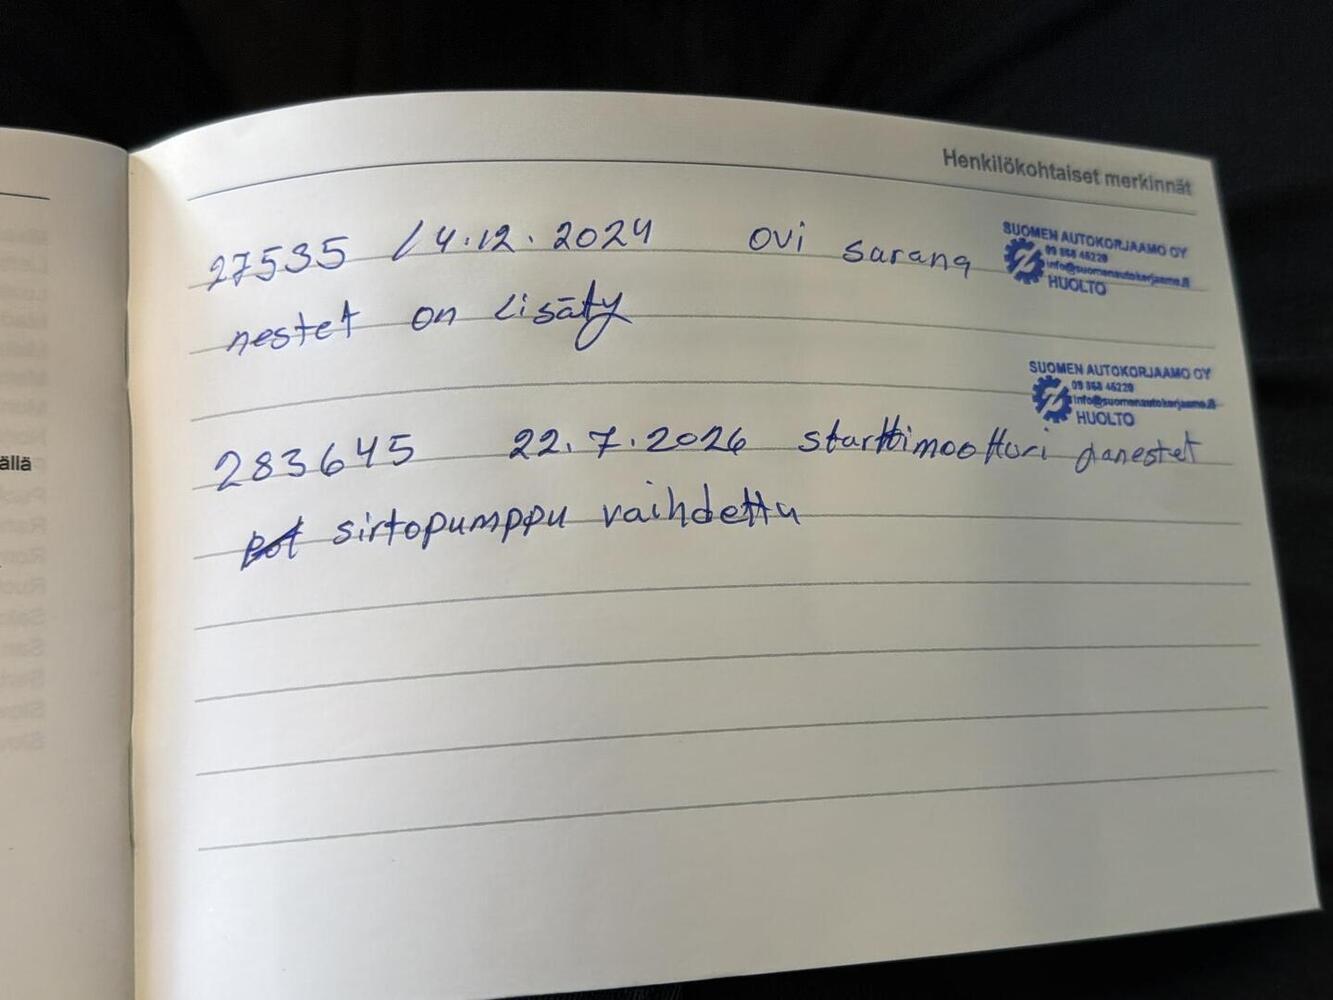 Henkilökohtaiset merkinnät
SUOMEN AUTOKORJAAMO OY
09 868 46220
info@suomenautokorjaamo.fi
HUOLTO
27535 / 4.12.2024 ovi sarana
nestet on lisäty
SUOMEN AUTOKORJAAMO OY
09 868 46220
info@suomenautokorjaamo.fi
HUOLTO
283645 22.7.2026 starttimoottori janestet
sirtopumppu vaihdettu
ällä